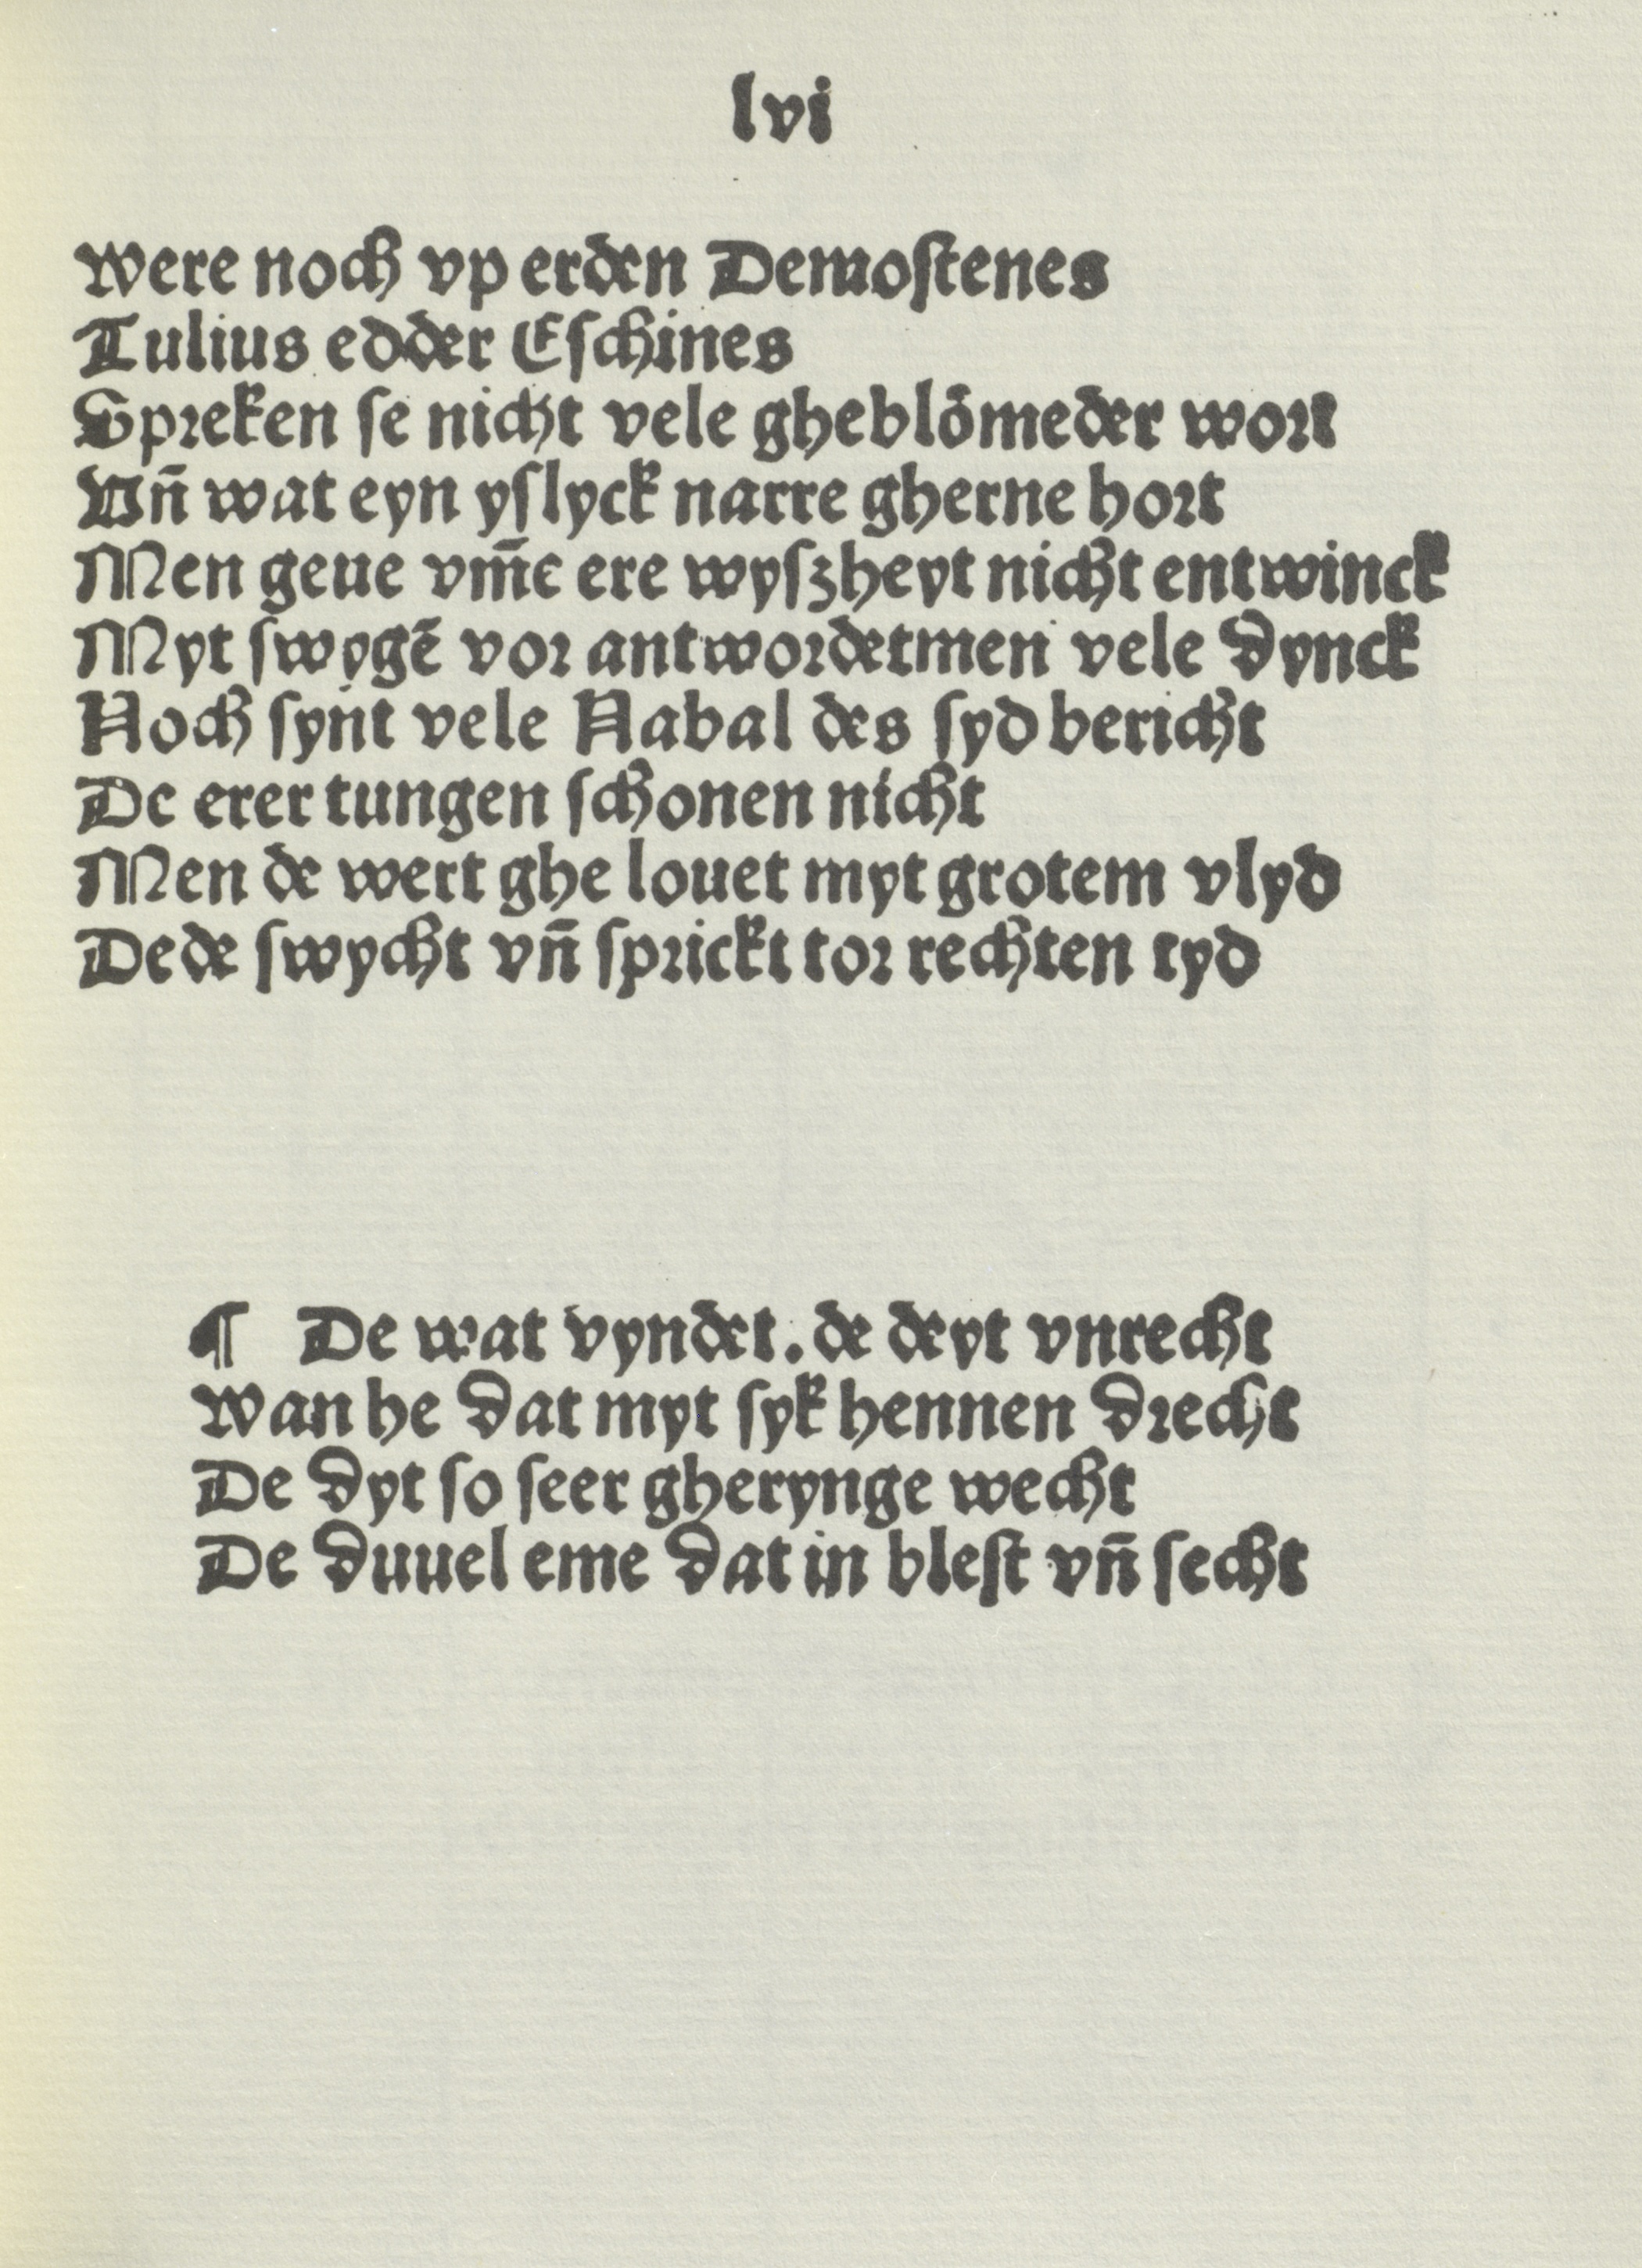 lvi
Were noch vp erden Demoſtenes
Tulius edder Eſchines
Spreken ſe nicht vele gheblōmeder wort
Vñ wat eyn yſlyck narre gherne hort
Men geue vm̄e ere wyſzheyt nicht entwinck
Myt ſwygē vor antwordetmen vele dynck
Noch ſynt vele Nabal des ſyd bericht
De erer tungen ſchonen nicht
Men de wert ghe louet myt grotem vlyd
Dede ſwycht vñ ſprickt tor rechten tyd
¶ De wat vyndet. de deyt vnrecht
Wan he dat myt ſyk hennen drecht
De dyt ſo ſeer gherynge wecht
De duuel eme dat in bleſt vñ ſecht